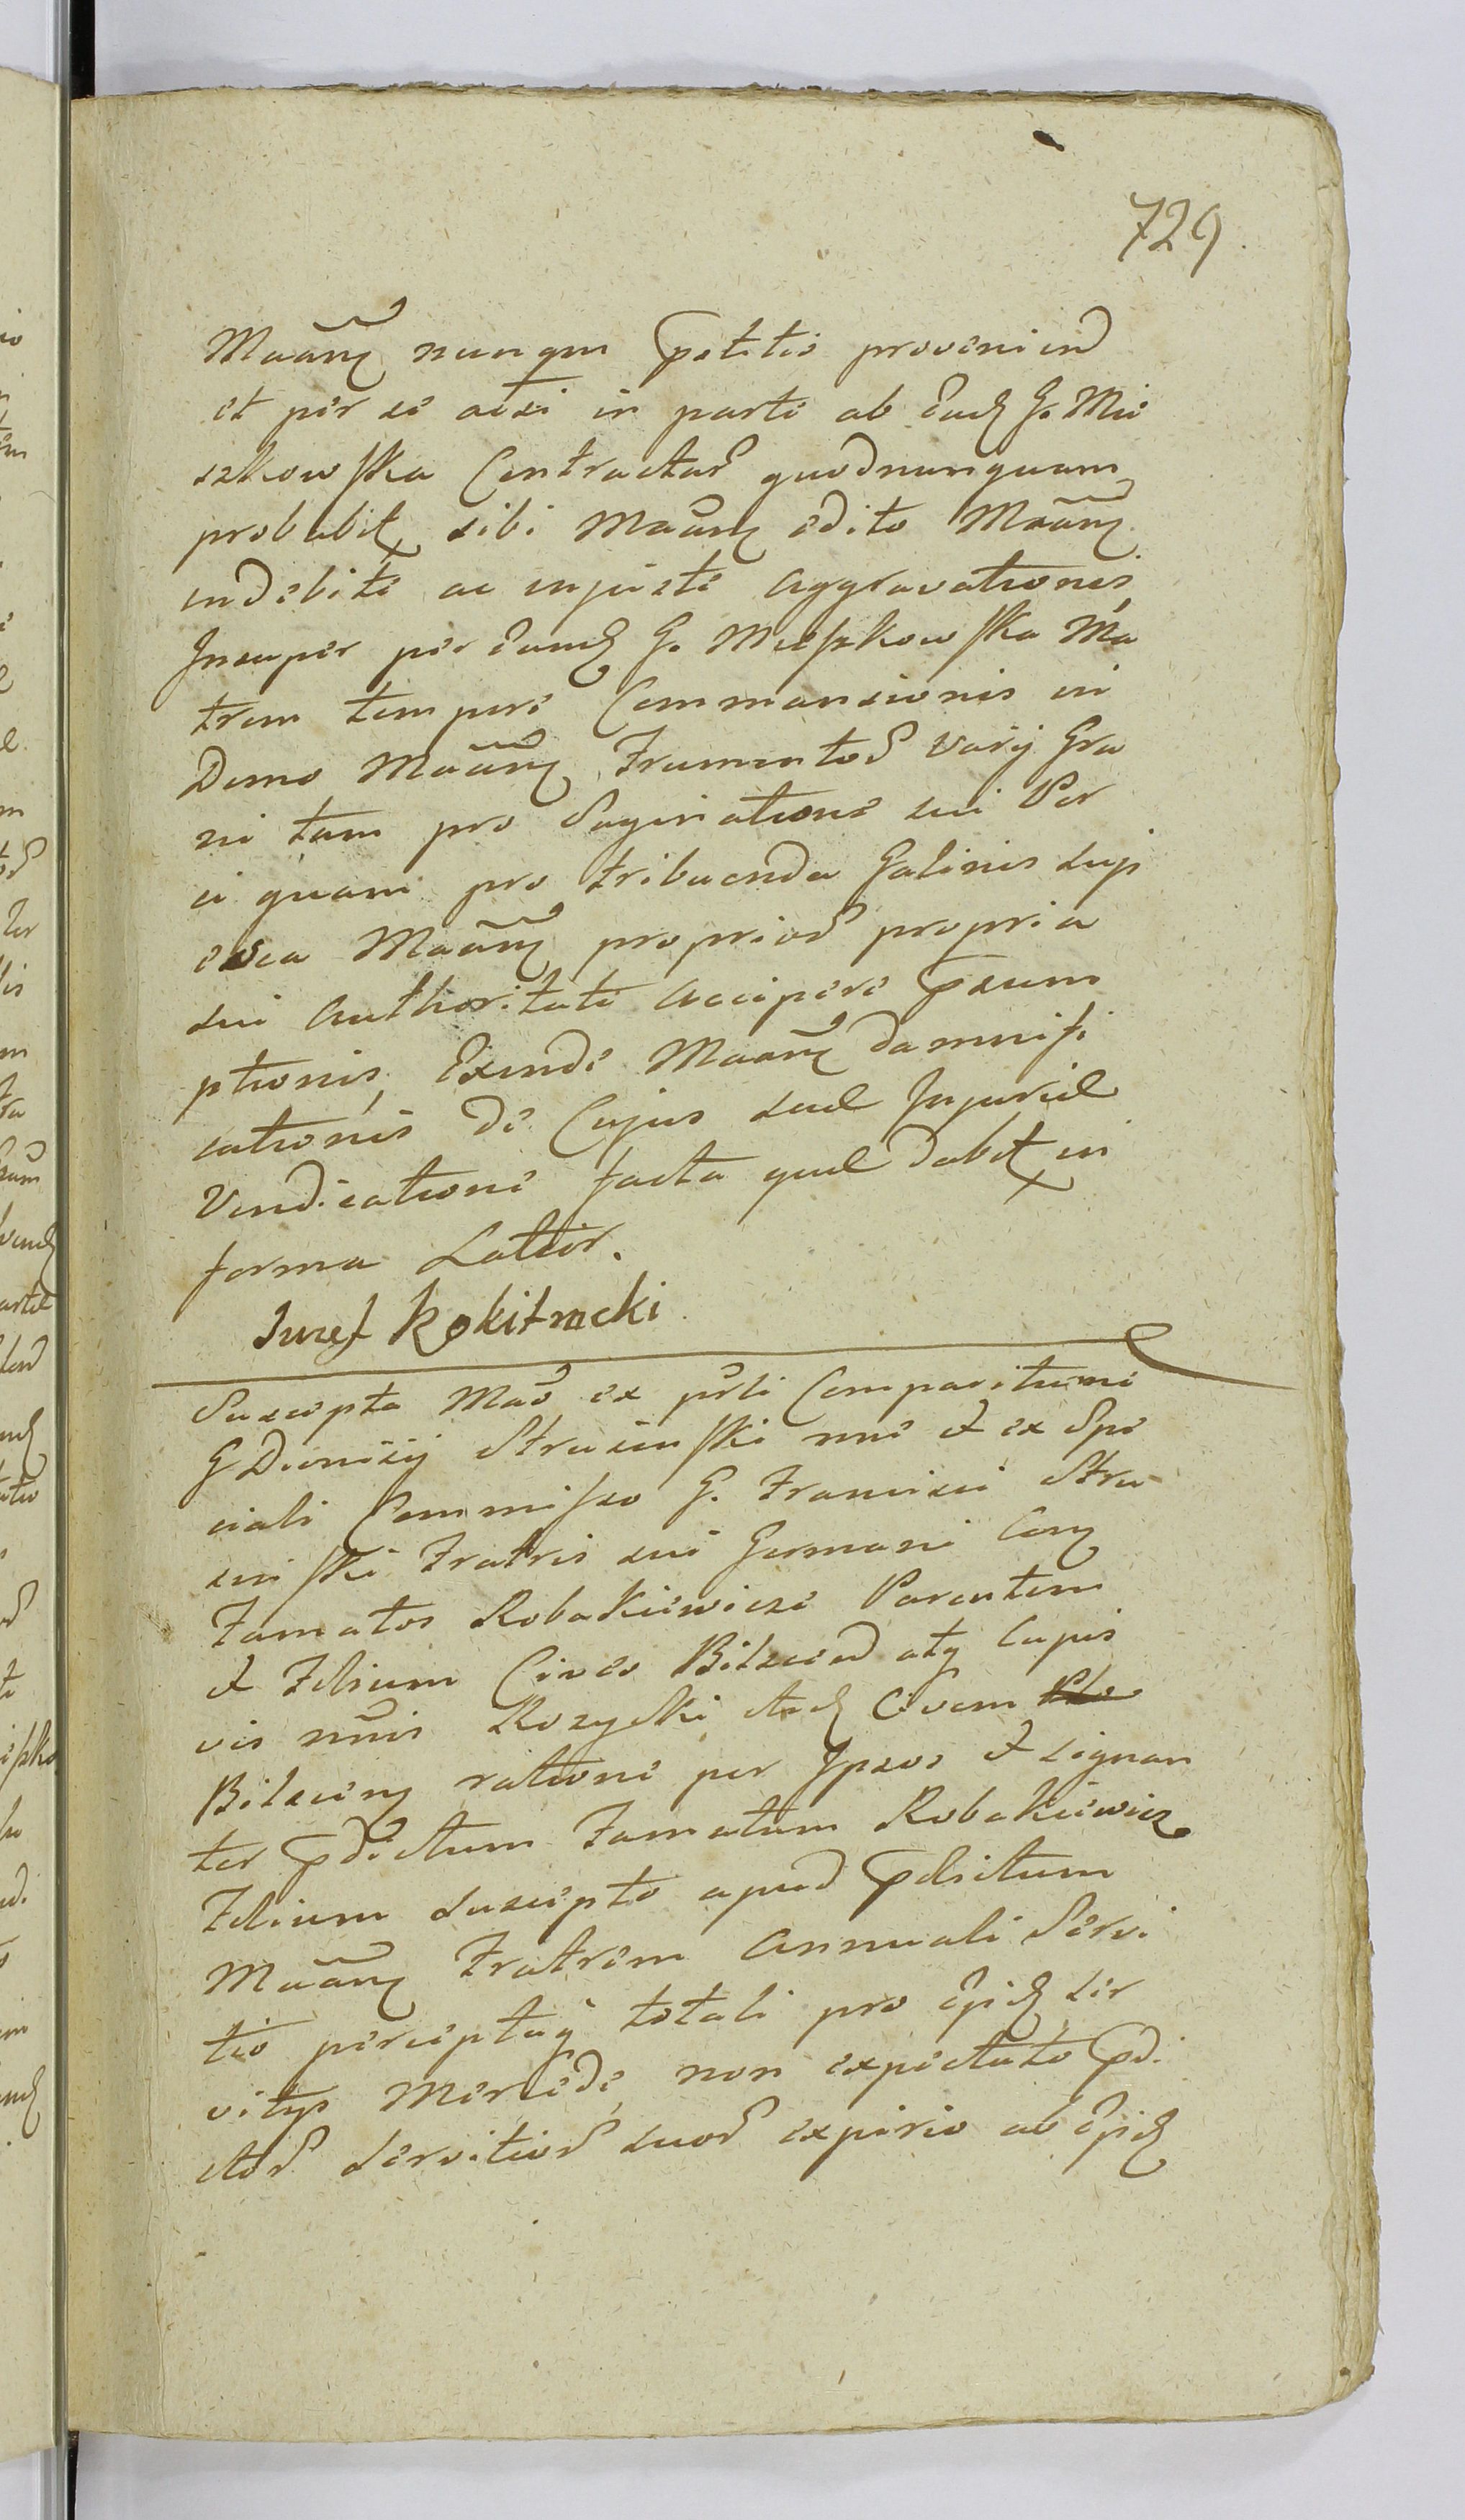 729
Maãnꝫ nunqm p̃tito proveniend
et per se acsi in parte ab Eadꝫ G. Mie
szkowska Contractar̃ quod nunquam
probabit sibi Maãnꝫ edito Maãnꝫ
indebite ac injuste aggravationis,
Insuper per Eandꝫ G. Mieszkowska Ma
trem tempore Commansionis in
Domo Maãnꝫ, Frumentor̃ varij Gra
ni tam pro Saginatione sui Por
ci quam pro tribuenda Galinis suis
esca Maãnꝫ proprior̃ propria
sui authoritate accipere p̃sum
ptionis, Exinde Maãnꝫ damnifi
cationis de Cujus sual Injurial
Vendicatione facta qual dabit in
forma Latior.
Iuzef Rokitnicki
Suscepta Maõ ex p̃sli Comparitione
G Dionisij Strusinski nõe et ex Spe
ciali Commisso G. Francisci Stru
sinski Fratris sui Germani Conꝫ
Famatos Robakiewicze Parentem
et Filium Cives Bilscen̄ atq cujus
vis nõis Rozycki itidꝫ Civem
Bilscenꝫ ratione per Ipsos et signan
ter p̃dictum Famatum Robakiewicz
Filium suscepto apud p̃dictum
Maãnꝫ Fratrem annuali Servi
tio perceptaq̃ totali pro Ejusdꝫ ser
vitijs Mercede, non expectato p̃di
ctor̃ servitior̃ suor̃ expirio ab Ejusdꝫ